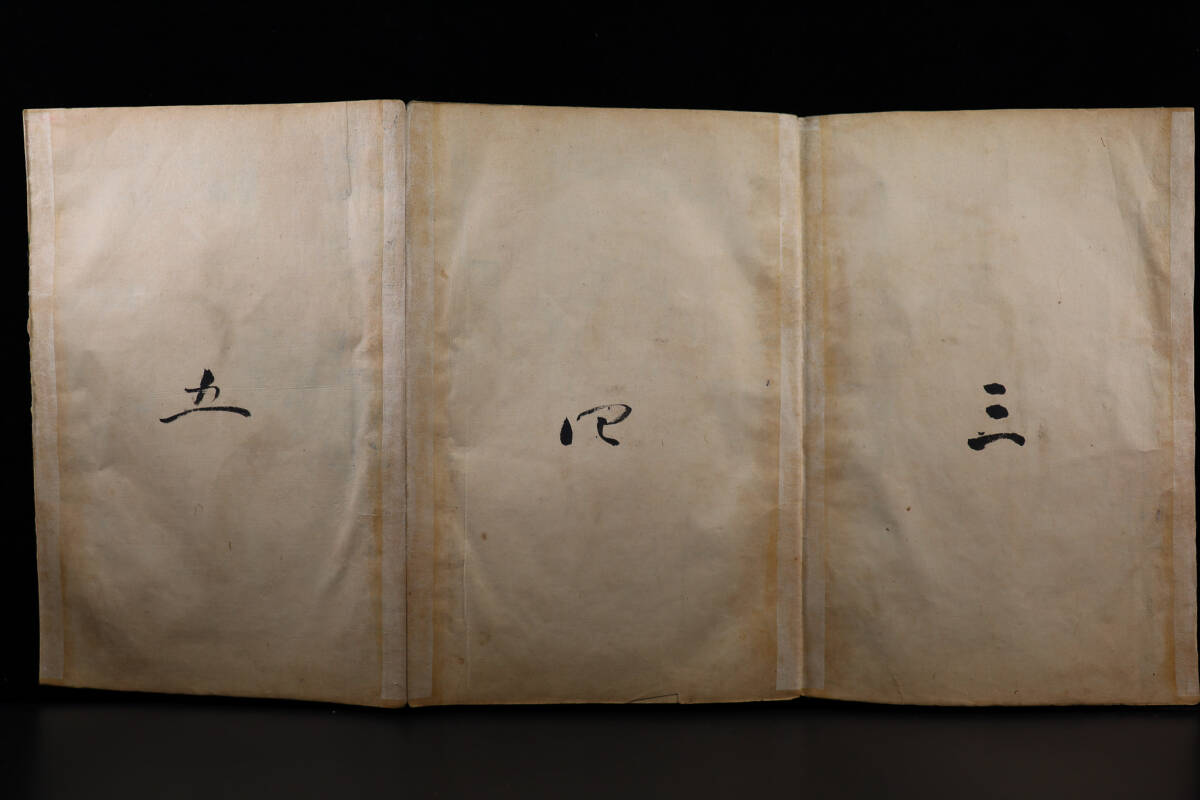 三
四
五